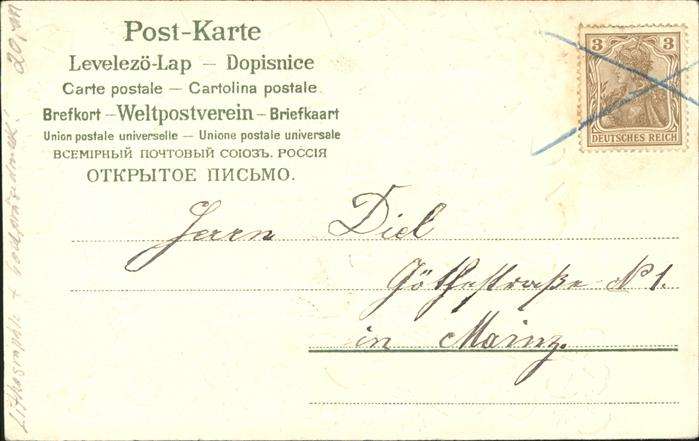 Post-Karte
Levelezö-Lap — Dopisnice
Carte postale — Cartolina postale
Brefkort – Weltpostverein – Briefkaart
Union postale universelle — Unione postale universale
ВСЕМІРНЫЙ ПОЧТОВЫЙ СОЮЗЪ. РОССІЯ
ОТКРЫТОЕ ПИСЬМО.
3 3
DEUTSCHES REICH
Herrn Diel
Göthestraße N 1.
in Mainz.
Lithographie +
20,-